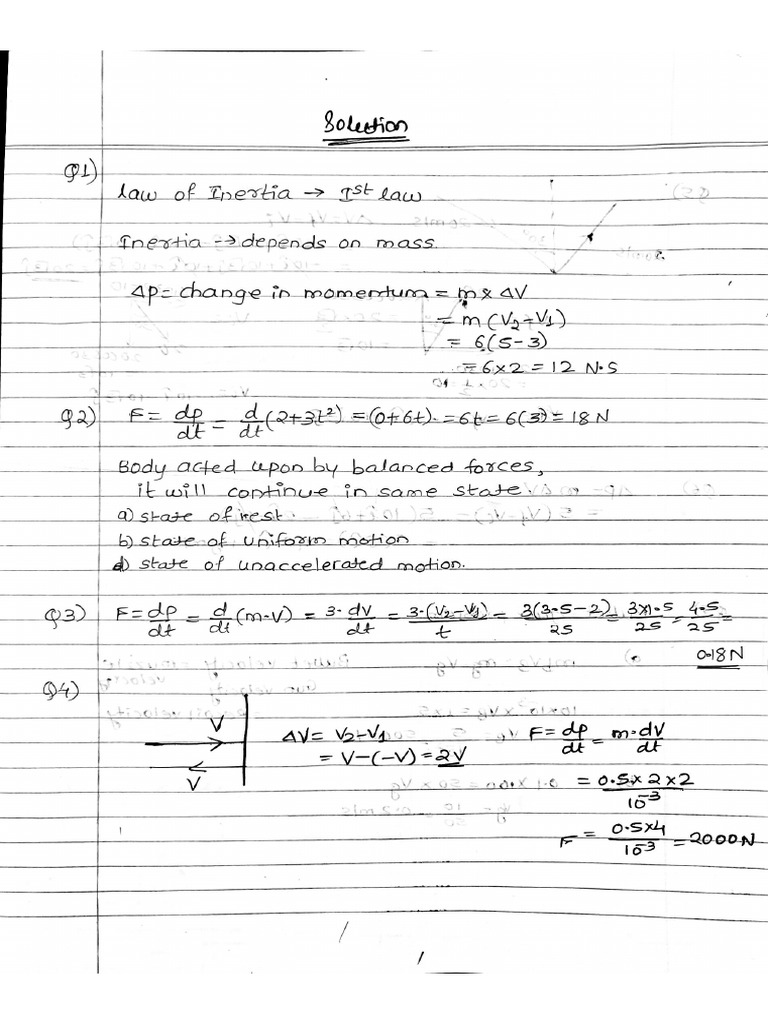 Solution
Q1)
Law of Inertia → Ist law
Inertia → depends on mass.
Δp = change in momentum = m x ΔV
= m (V2-V1)
= 6(5-3)
= 6x2 = 12 N.S
Q2) F = dp/dt = d/dt (2+3t²) = (0+6t). = 6t = 6(3) = 18 N
Body acted upon by balanced forces,
it will continue in same state.
a) state of rest.
b) state of uniform motion
d) state of unaccelerated motion.
Q3) F = dp/dt = d/dt (m.V) = 3. dV/dt = 3.(V2-V1)/t = 3(3.5-2)/25 = 3x1.5/25 = 4.5/25 =
0.18N
Q4)
V
V
ΔV = V2-V1
= V-(-V) = 2V
F = dp/dt = m.dV/dt
= 0.5x2x2/10⁻³
F = 0.5x4/10⁻³ = 2000N